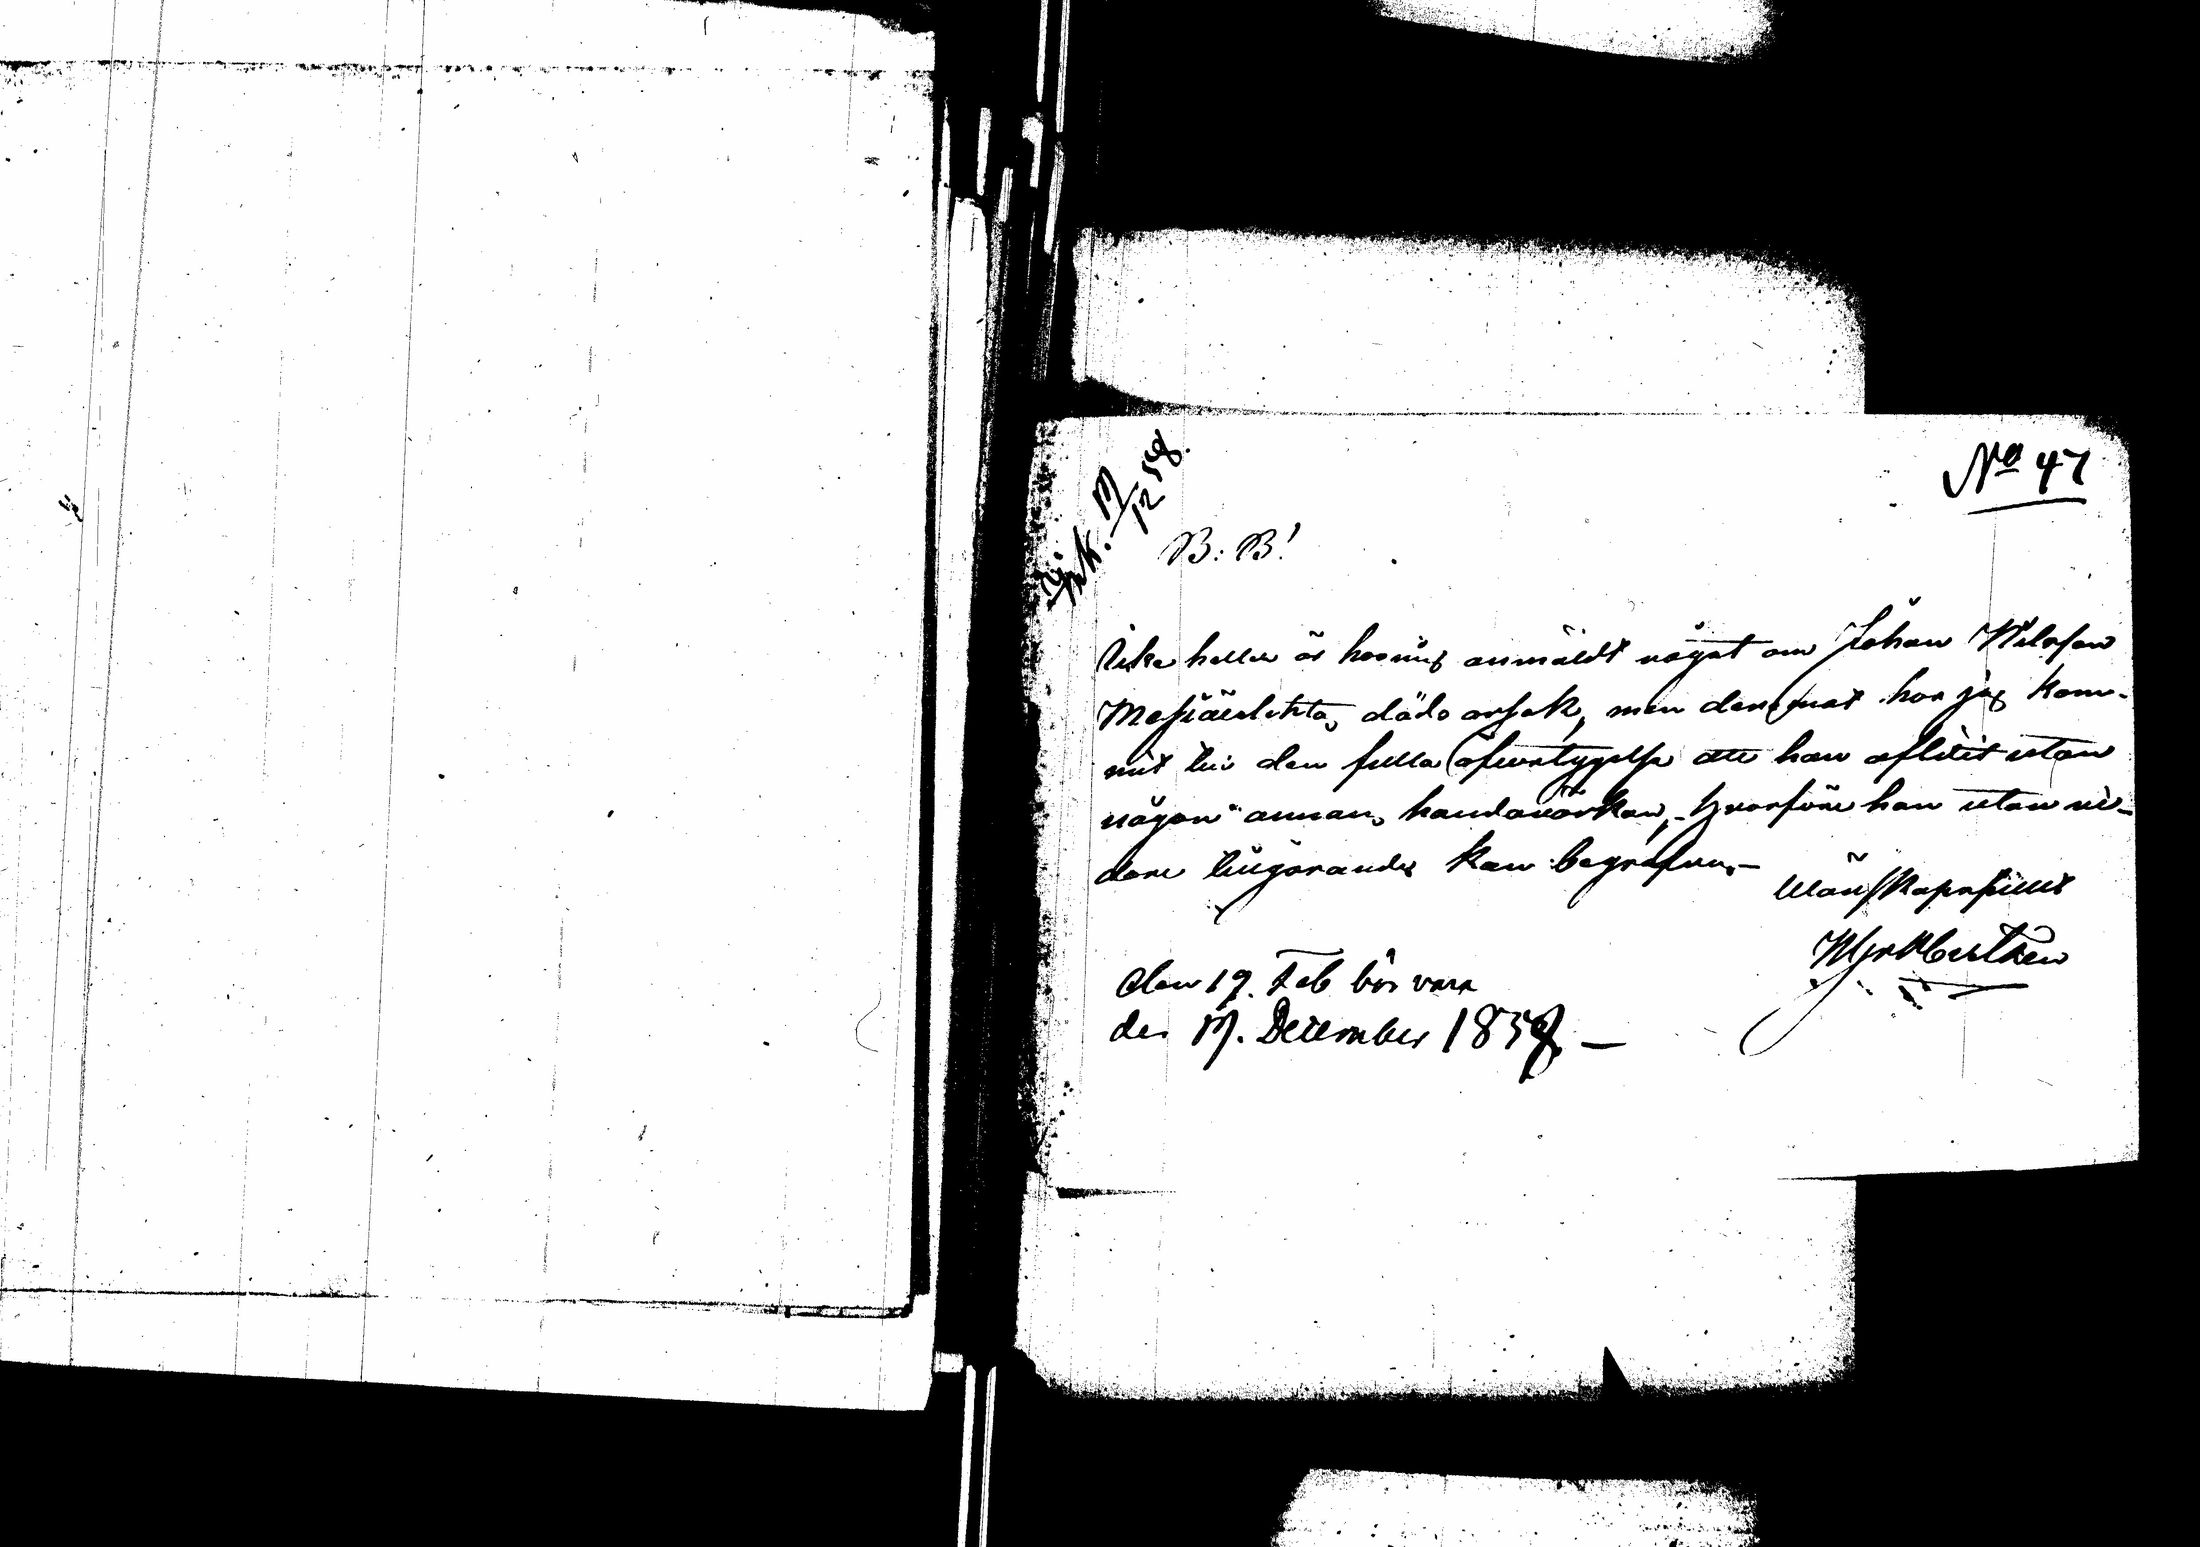 Ink. 17/12 58.
No 47
B: B!
Icke heller är hos mig anmäldt något om Johan Nilsson
döds orsak, men deremot har jag kom-
mit till den fulla öfvertygelse att han aflidit utan
någon annans handaverkan, - hvarföre han utan vi-
dare tillgörande kan begrafvas. -
Vänskapsfullt
den 19. Feb bör vara
den 17. December 1858 -